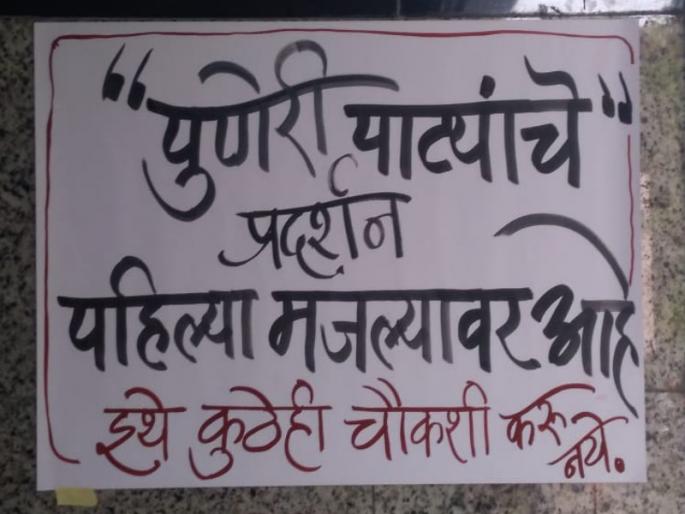 "पुणेरी पाट्यांचे"
प्रदर्शन
पहिल्या मजल्यावर आहे
इथे कुठेही चौकशी करू
नये.